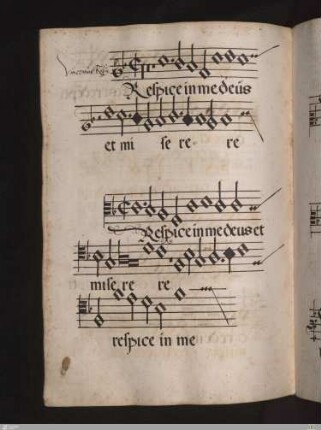 Respice in me deus
et mi se re re
Respice in me deus et
mise re re
respice in me